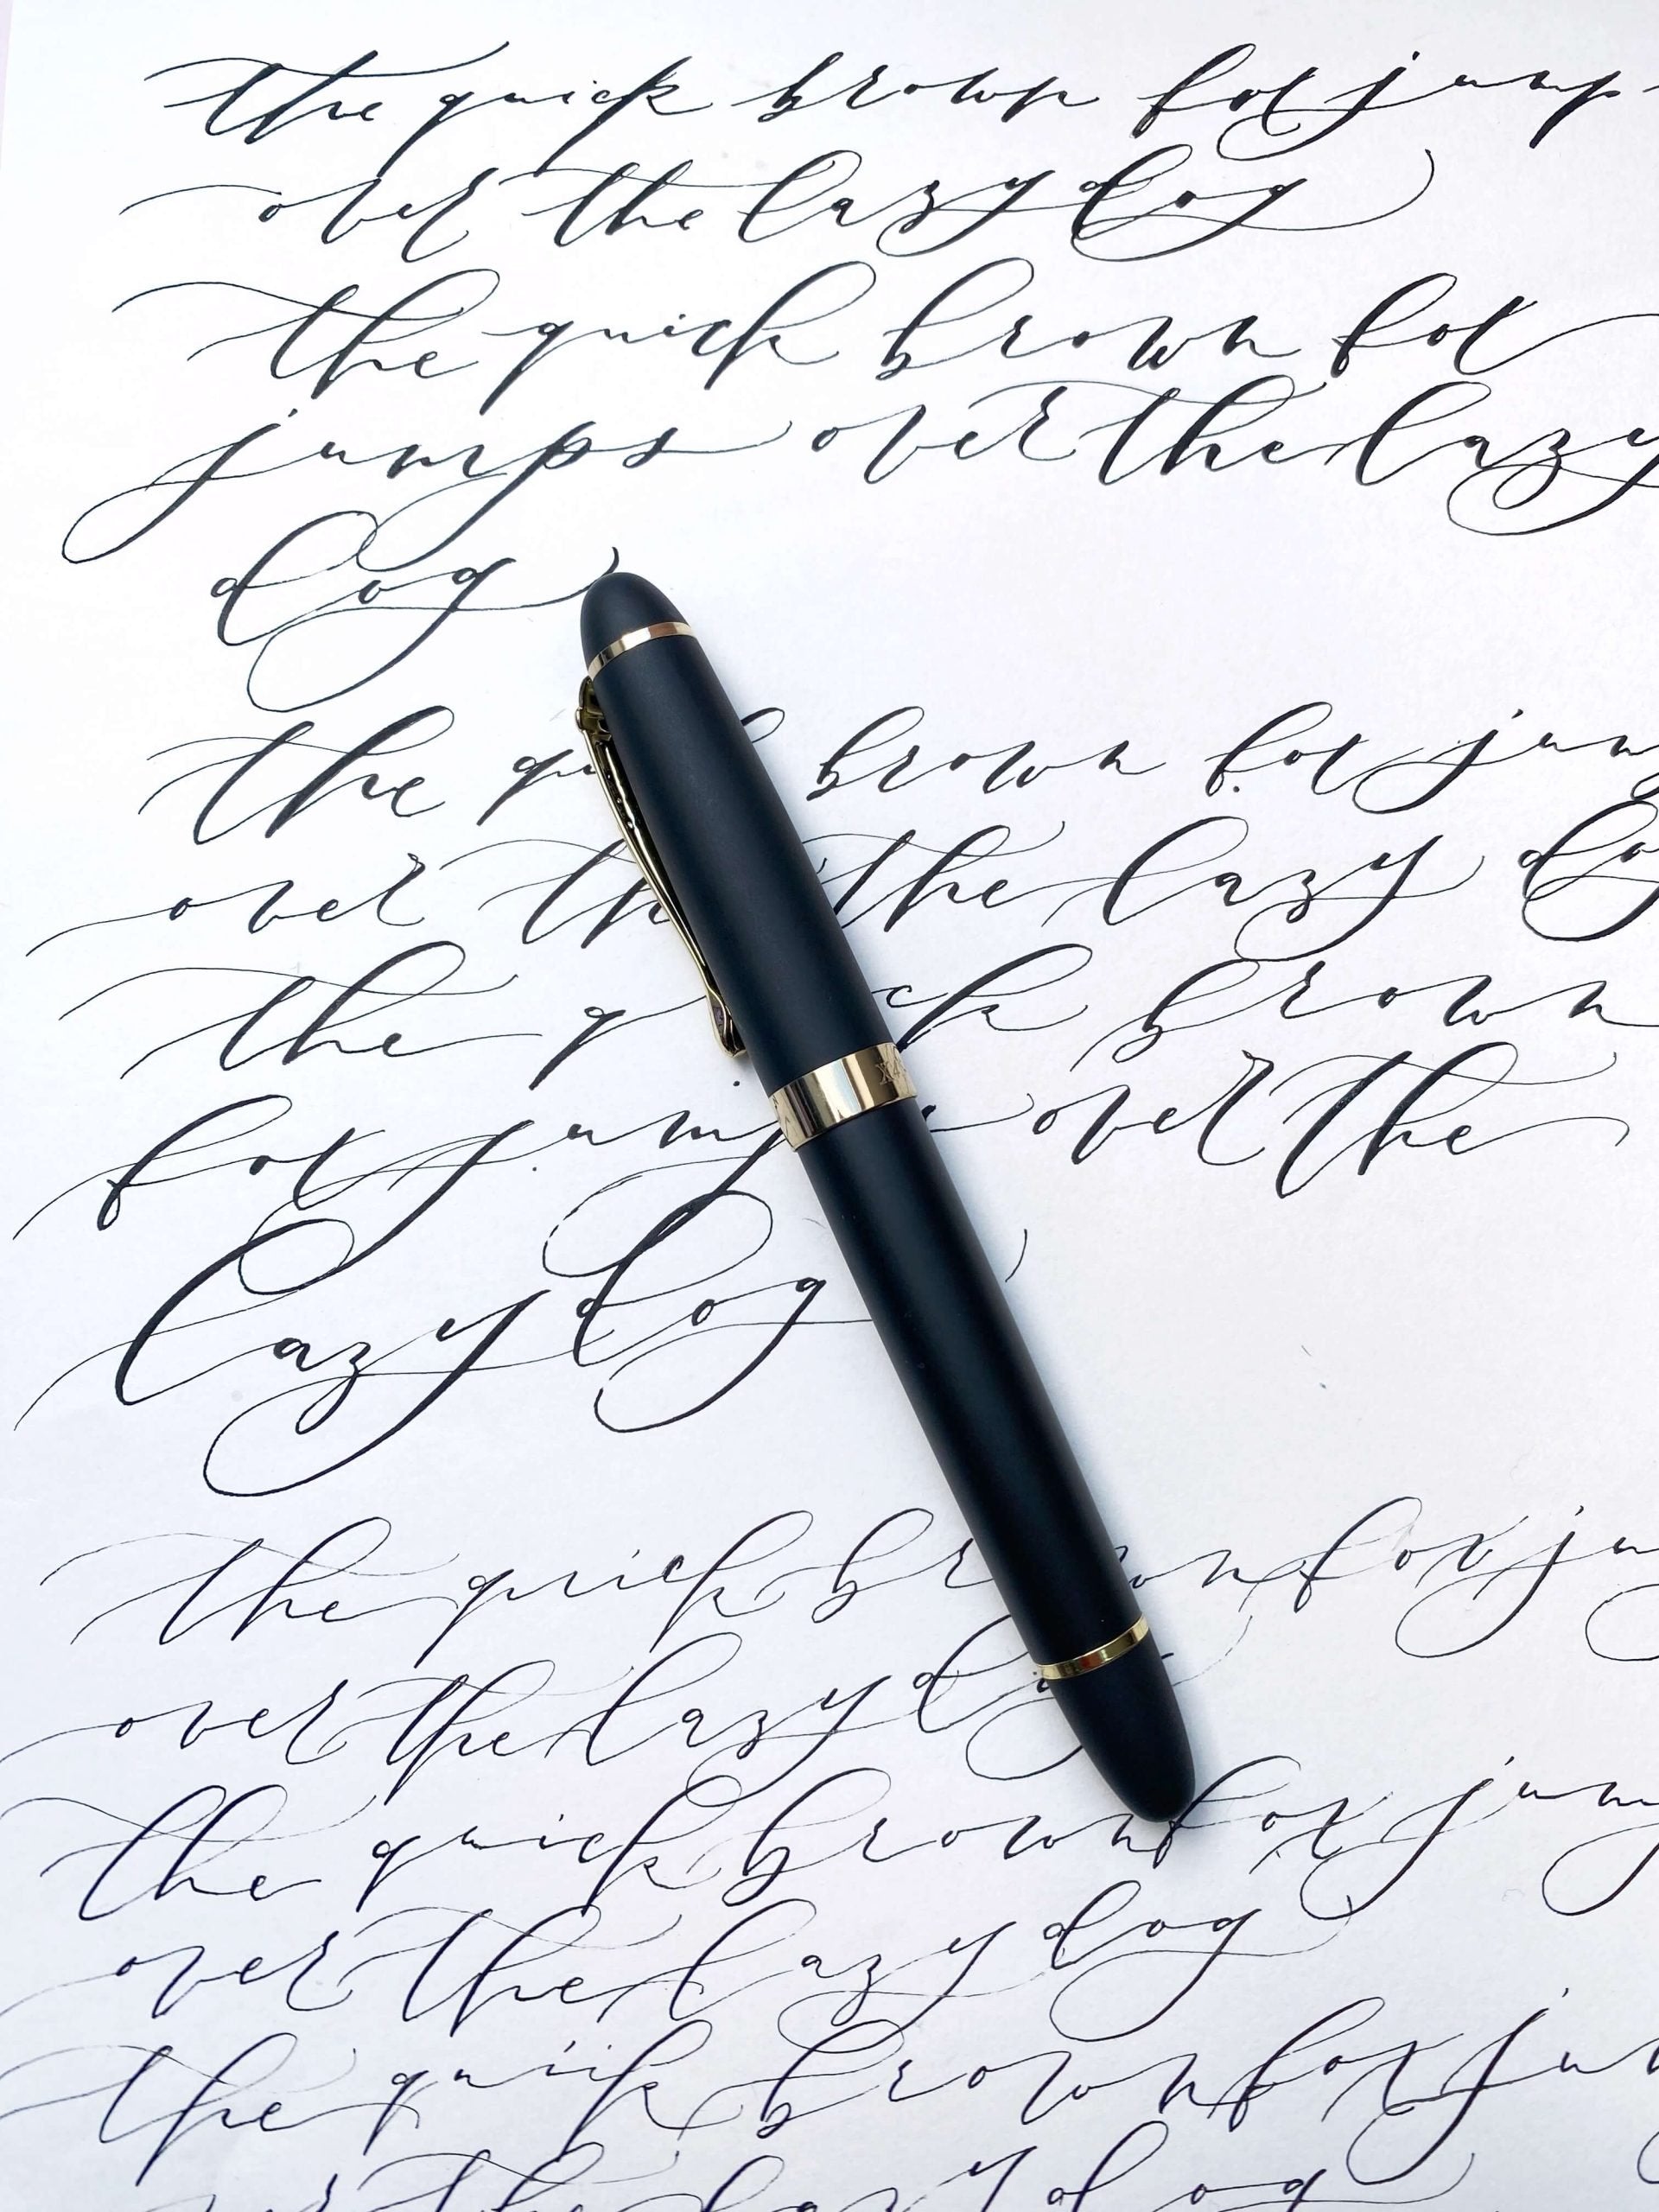 the quick brown fox jump
over the lazy dog
the quick brown fox
jumps over the lazy
dog
the qu brown fox jum
over th the lazy do
the q ck brown
fox jump over the
lazy dog
the quick br wn fox ju
over the lazy d
the quick brown fox jum
over the lazy dog
the quick brown fox ju
over the lazy dog